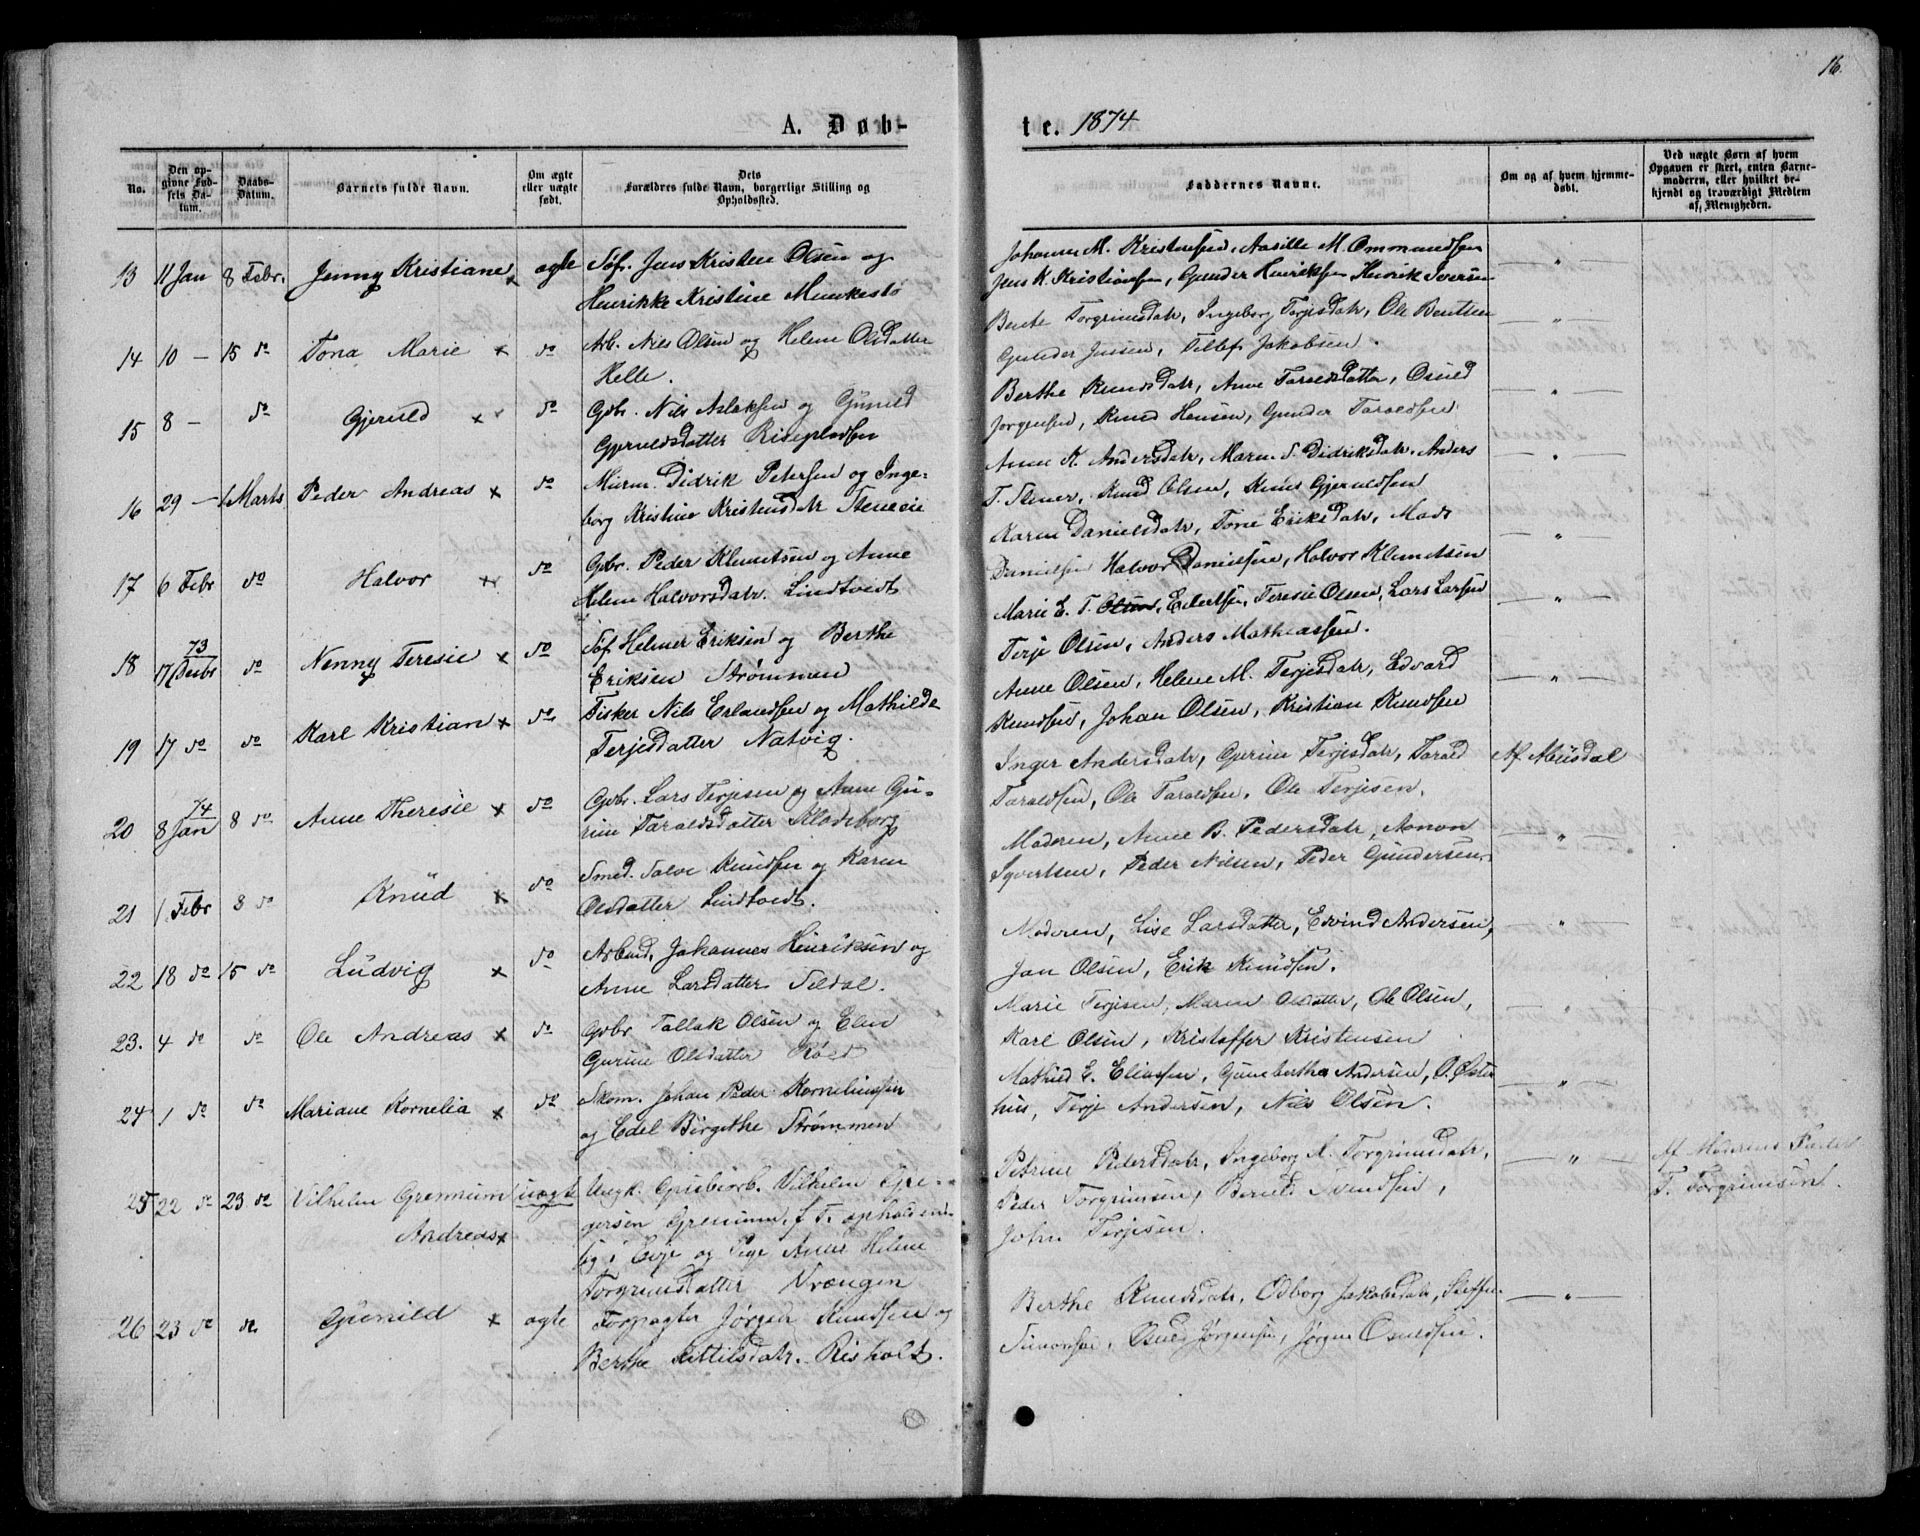 16.
A. Døb-
te. 1874
No.
Den op-
givne Fød-
sels Da-
tum.
Daabs-
Datum.
Barnets fulde Navn.
Om ægte
eller uægte
født.
Dets
Forældres fulde Navn, borgerlige Stilling og
Opholdssted.
Faddernes Navne.
Om og af hvem hjemme-
døbt.
Ved uægte Børn af hvem
Opgaven er skeet, enten Barne-
moderen, eller hvilket be-
kjendt og troværdigt Medlem
af Menigheden.
13 11 Jan 8 Febr. Jenny Kristiane x ægte Søf. Jens Kristen Olsen og
Henrikke Kristine Munkestø
Johanne M. Kristensen, Aasille M. Ommundsen
Jens K. Kristiansen, Gunder Henriksen Henrik Iversen
14 10 — 15 do Tona Marie x do Arb. Nils Olsen og Helene Olsdatter
Helle.
Bente Torgrimsdatr, Ingeborg Terjesdatr, Ole Bentsen
Gunder Jensen, Tellef Jakobsen.
15 8 — do Gjeruld x do Gbr. Nils Aslaksen og Gunild
Gjeruldsdatter Risepladsen
Berthe Knudsdatr, Anne Taraldsdatter, Osuld
Jørgensen, Knud Hansen, Gunder Taraldsen.
16 29 — 1 Marts Peder Andreas x do Murm. Didrik Petersen og Inge-
borg Kristine Kristensdatr Steneie
Anne K. Andersdatr, Maren S. Didriksdatr. Anders
T. Stener, Knud Olsen, Knud Gjeruldsen
17 6 Febr do Halvor x do Gbr. Peder Klemetsen og Anne
Helene Halvorsdatr. Lindtvedt
Karen Danielsdatr, Tone Eriksdatr, Mads
Danielsen Halvor Danielsen, Halvor Klemetsen
18 73
17 Decbr do Nenny Teresie x do Søf Helmer Eriksen og Berthe
Eriksen Strømmen
Marie E. T. Olsen, Eilertsen, Teresie Olsen, Lars Larsen
Terje Olsen, Anders Mathiassen.
19 17 do do Karl Kristian x do Fisker Nils Erlandsen og Mathilde
Terjesdatter Natvig.
Anne Olsen, Helene M. Terjesdatr, Edvard
Knudsen, Johan Olsen, Kristian Knudsen
20 74
8 Jan 8 do Anne Theresie x do Gbr. Lars Terjesen og Anne Gu-
rine Taraldsdatter Kladeborg
Inger Andersdatr, Gurine Terjesdatr, Tarald
Taraldsen, Ole Taraldsen, Ole Terjesen.
Af Messdal
21 1 Febr 8 do Knud x do Smed. Salve Knudsen og Karen
Olsdatter Lindtvedt.
Moderen, Anne B. Pedersdatr, Aanon
Syvertsen, Peder Nilsen, Peder Gundersen.
22 18 do 15 do Ludvig x do Arbeid. Johannes Henriksen og
Anne Larsdatter Seldal.
Moderen, Lise Larsdatter, Edvind Andersen,
Jan Olsen, Erik Knudsen.
23. 4 do do Ole Andreas x do Gbr Tallak Olsen og Elen
Gurine Olsdatter Røed
Marie Terjesen, Maren Olsdatter, Ole Olsen,
Karl Olsen, Kristoffer Kristensen
24 1 do do Mariane Kornelia x do Skom. Johan Peder Korneliussen
og Edel Birgithe Strømmen
Mathild E. Eliassen, Gunebertha Andersen, O. Øster
hus, Terje Andersen, Nils Olsen.
25 22 do 23 do Vilhelm Grennum
Andreas x uægt Ungk. Vilhelm Gre-
gersen Grennum, f. T. opholden-
sig i Evje og Pige Anne Helene
Torgrimsdatter Vrængen
Petrine Pedersdatr, Ingeborg A. Torgrimsdatr,
Peder Torgrimsen, Berntd Svendsen,
John Terjesen.
Af Moderens Fader
T. Torgrimsen.
26 23 do do Gunild x ægte Forpagter Jørgen Knudsen og
Berthe Kittilsdatr. Risholt.
Berthe Knudsdatr, Odborg Jakobsdatr, Steffen
Osuld Jørgensen, Jørgen Osuldsen.